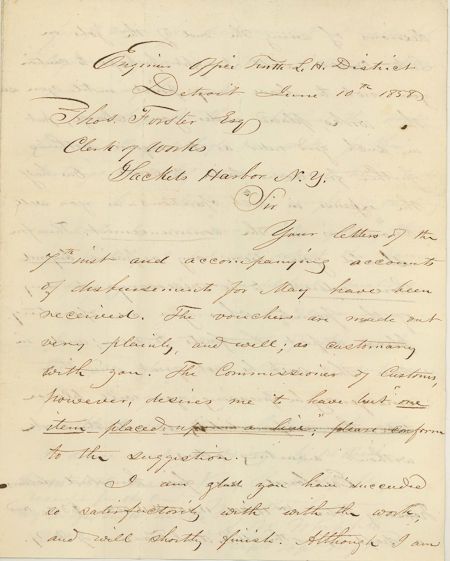 Engineer Office Tenth L. H. District
Detroit June 10th 1858
Thos. Forster Esq
Clerk of Works
Sackets Harbor N. Y.
Sir
Your letters of the
7th inst and accompanying accounts
of disbursements for May have been
received. The vouchers are made out
very plainly, and well; as customary
with you. The Commissioner of Customs,
however, desires me to have but "one
item placed upon a line"; please conform
to the suggestion.
I am glad you have succeeded
so satisfactorily with with the work,
and will shortly finish. Although I am